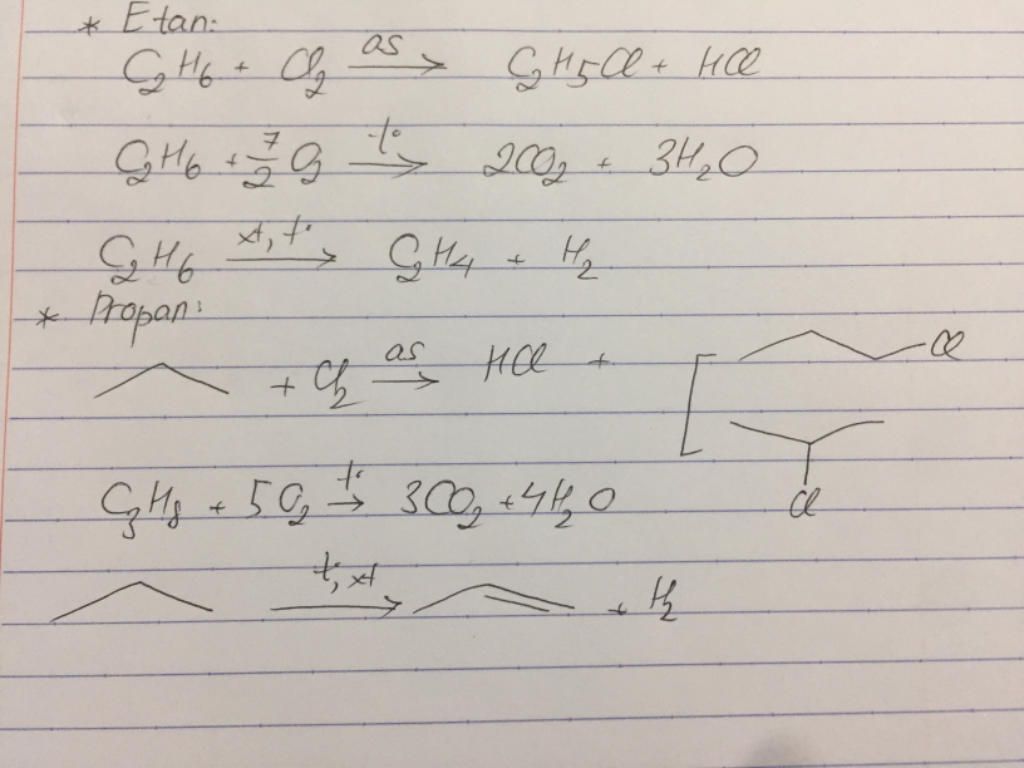 * Etan:
C2H6 + Cl2 as → C2H5Cl + HCl
C2H6 + 7/2 O2 t° → 2CO2 + 3H2O
C2H6 xt, t° → C2H4 + H2
* Propan:
+ Cl2 as → HCl + [ Cl
Cl
C3H8 + 5O2 t° → 3CO2 + 4H2O
t°, xt → + H2